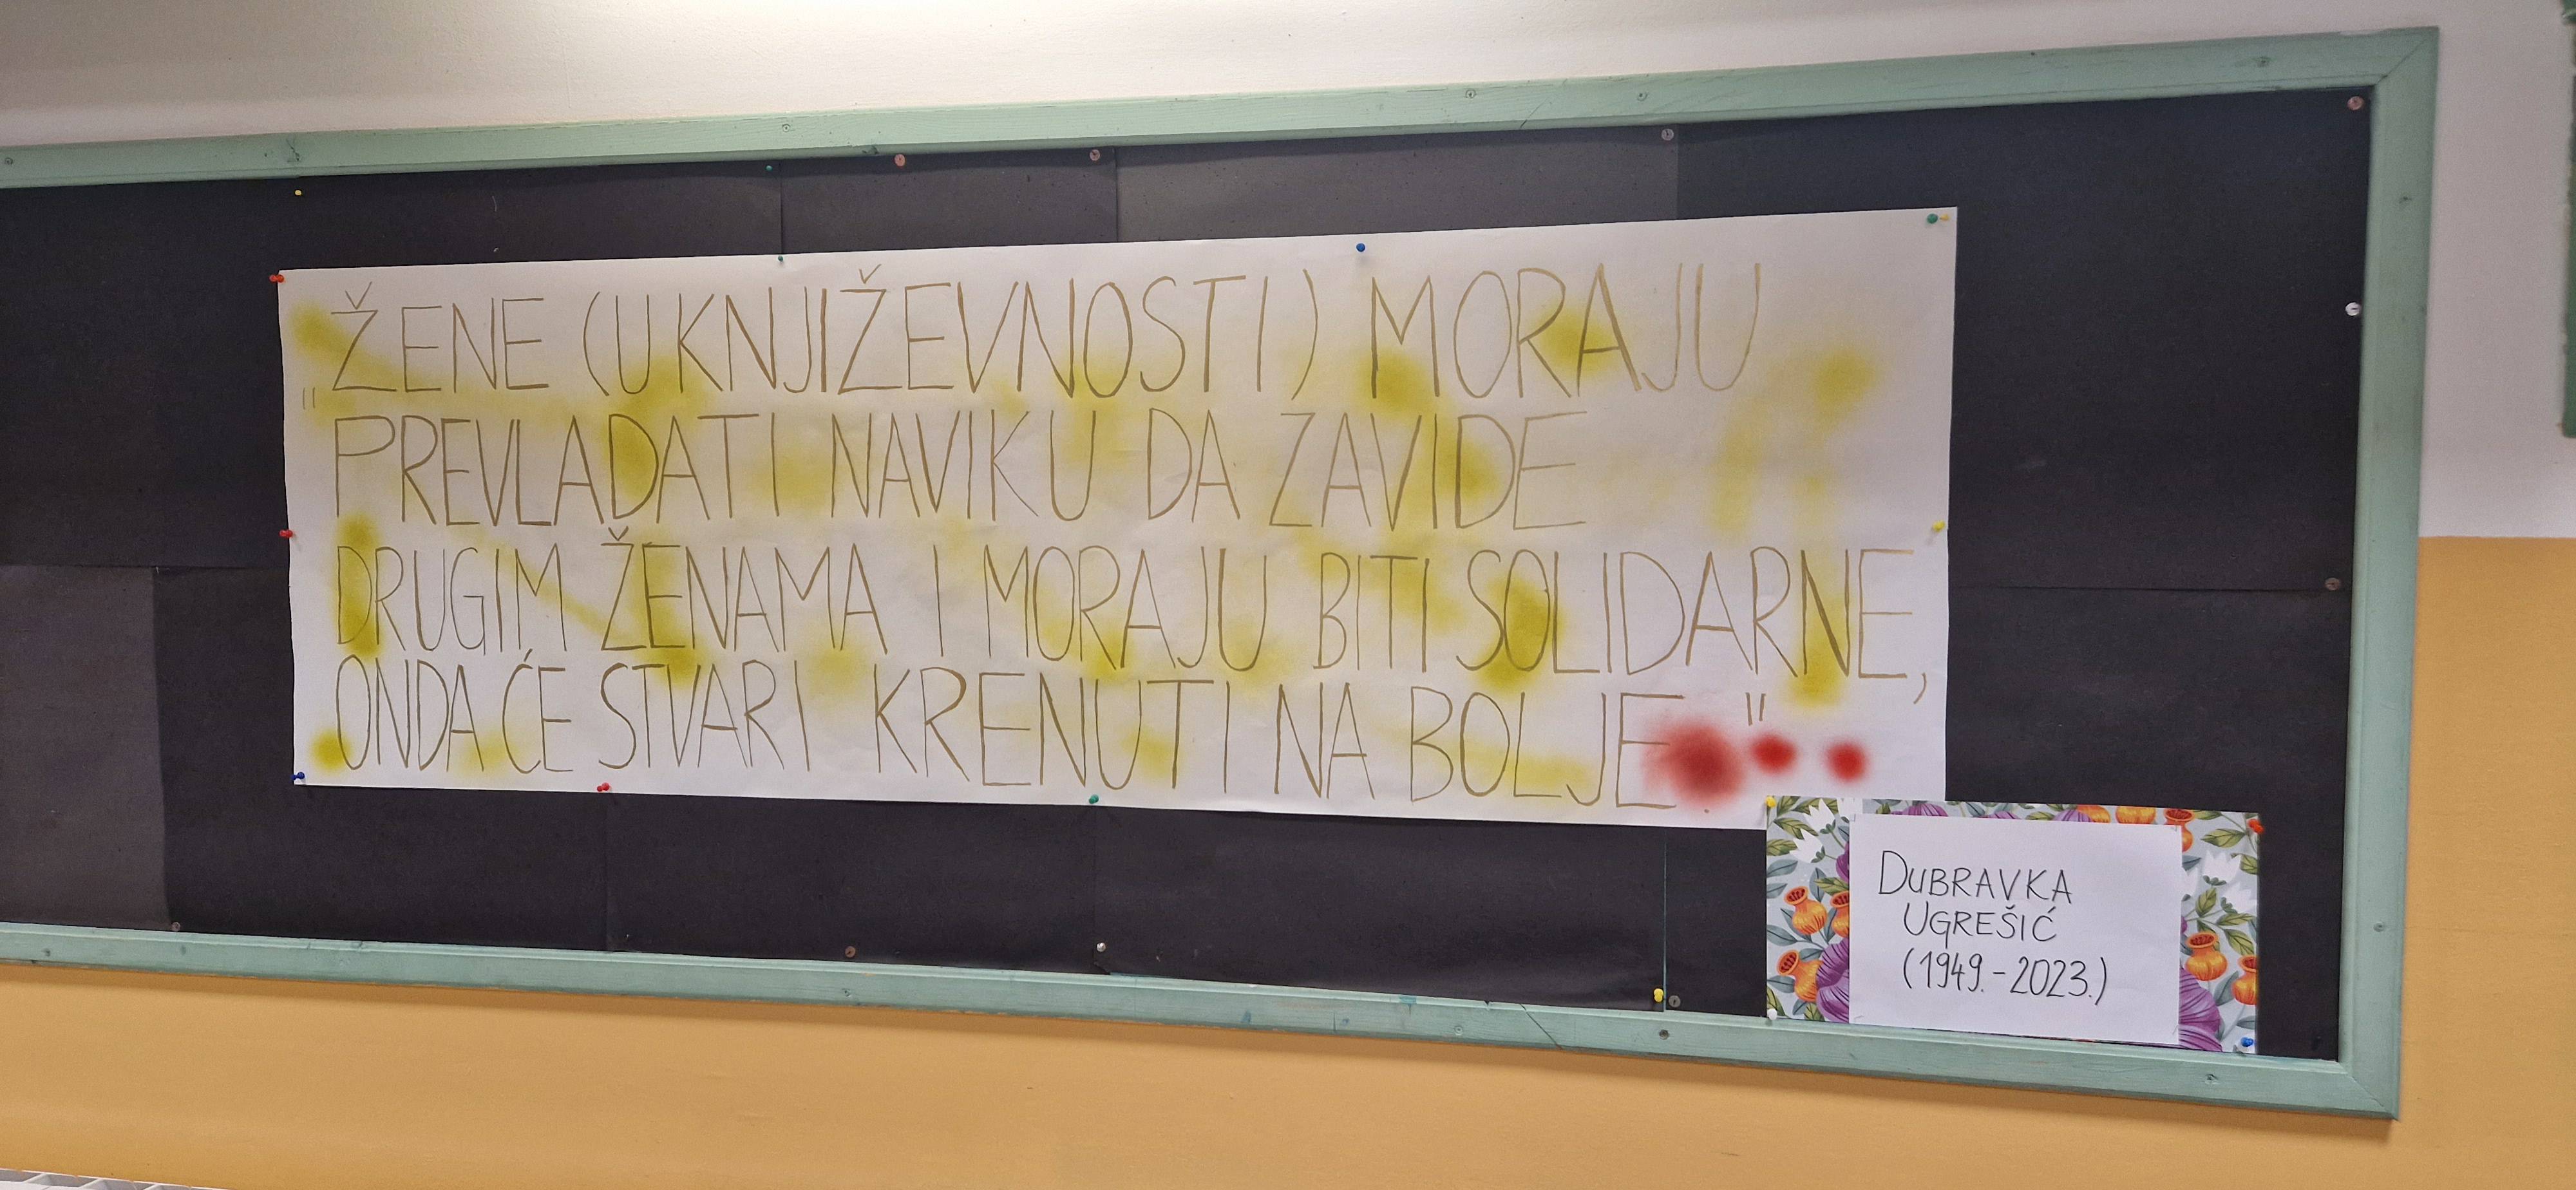 „ŽENE (U KNJIŽEVNOSTI) MORAJU
PREVLADATI NAVIKU DA ZAVIDE
DRUGIM ŽENAMA I MORAJU BITI SOLIDARNE,
ONDA ĆE STVARI KRENUTI NA BOLJE"
DUBRAVKA
UGREŠIĆ
(1949.-2023.)